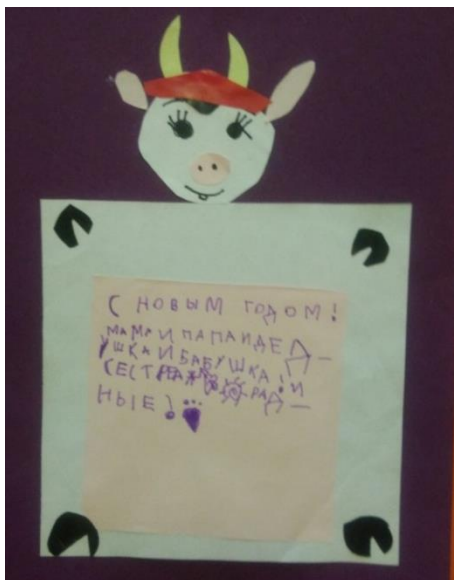 С НОВЫМ ГОДОМ!
МАМА И ПАПА И ДЕД-
УШКА И БАБУШКА! И
СЕСТРА РАД-
НЫЕ!